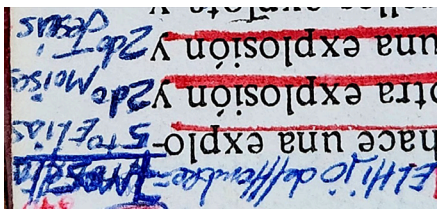 El Hijo del Hombre =
hace una explo- 5to Elias
otra explosión y 2do Moises
una explosión y 2do Jesús